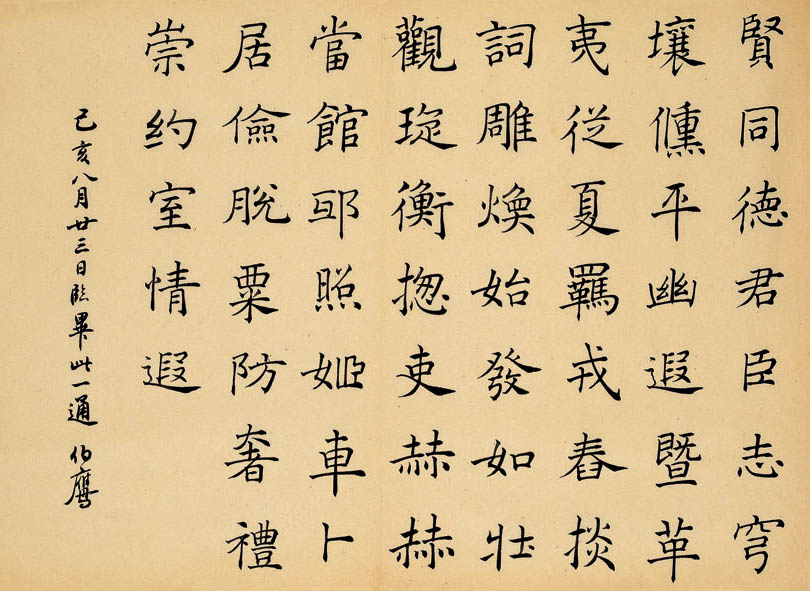 賢同德君臣志穹
壤平幽遐暨革
夷從夏羈戎舂掞
詞雕煥始發如壯
觀琁衡揔吏赫赫
當館照姬車卜
居儉脫粟防奢禮
崇約室情遐
己亥八月廿三日臨畢此一通 伯鷹